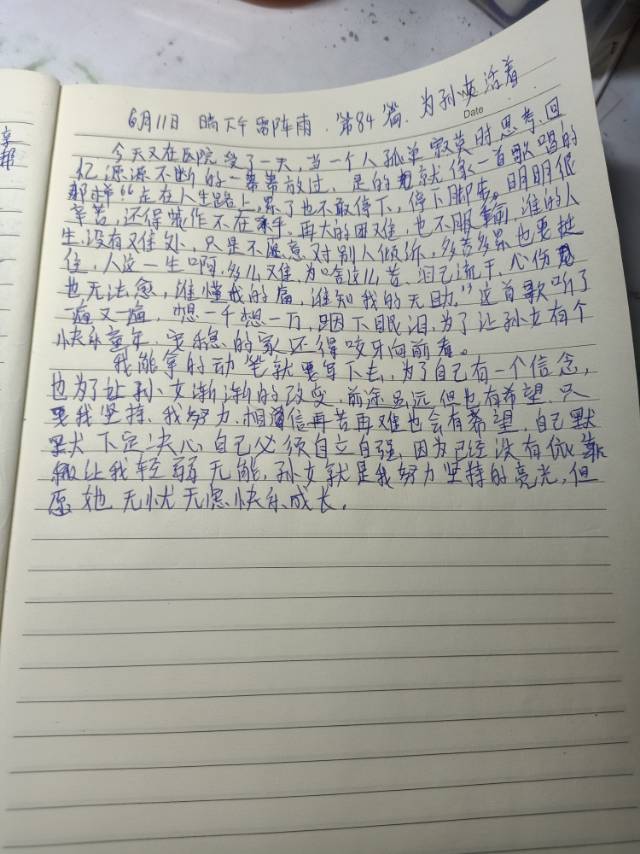 6月11日 晴下午雷阵雨.第84篇.为孙女活着
Date
今天又在医院多了一天,当一个人孤单寂寞时思考.回
忆源源不断的一幕幕放过,是的就像一首歌唱的
那样“走在人生路上,累了也不敢停下,停下脚步。明明很
辛苦,还得装作不在乎.再大的困难,也不服输,谁的人
生.没有难处,只是不愿意对别人倾诉,多苦多累也要挺
住,人这一生啊,多么难.为啥这么苦、泪已流干,心伤
也无法愈,谁懂我的痛,谁知我的无助.”这首歌听了
一遍又一遍,想一千想一万,咽下眼泪.为了让孙女有个
快乐童年.安稳的家还得咬牙向前看。
我能拿的动笔就要写下去,为了自己有一个信念,
也为了让孙女渐渐的改变.前途遥远但也有希望.只
要我坚持.我努力.相信再苦再难也会有希望.自己默
默下定决心自己必须自立自强.因为已经没有依靠
让我轻弱无能.孙女就是我努力坚持的亮光,但
愿她无忧无虑快乐成长.